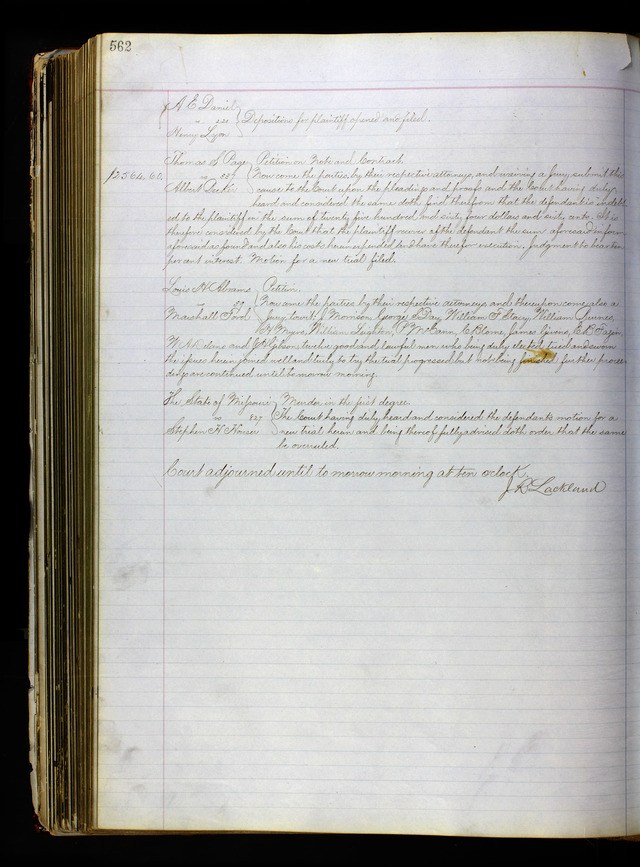 562
A E Daniel
vs } Depositions for plaintiff opened and filed.
Henry Lyon
Thomas S Page } Petition on Note and Contract
$2564.60. vs 887 Now come the parties by their respective attorneys, and waiving a Jury submit this
Albert cause to the Court upon the pleadings and proofs and the Court having duly
heard and considered the same doth find therefrom that the defendant is indebt
ed to the plaintiff in the sum of twenty five hundred and sixty four dollars and sixty cents. It is
therefore considered by the Court that the plaintiff recover of the defendant the sum aforesaid in form
aforesaid as found and also his costs herein expended and have therefor execution. Judgment to bear ten
per cent interest. Motion for a new trial filed.
Louis H Abrams } Petition.
vs Now come the parties by their respective attorneys and thereupon come also a
Marshall Pool Jury towit: J Morrison George Day, William T Stacy William
Myers, William P McCann, C Blome, James Givens, E
W and Gibson twelve good and lawful men who being duly elected tried and sworn
the issues herein joined well and truly to try the trial progressed but not being finished, further procee
dings are continued until tomorrow morning.
The State of Missouri } Murder in the first degree.
vs 827 The Court having duly heard and considered the defendants motion for a
Stephen H new trial herein and being thereof fully advised doth order that the same
be overruled.
Court adjourned until tomorrow morning at ten oclock.
J R Lackland